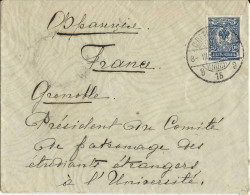 France
Grenoble
Président du Comité
de patronage des
étudiants étrangers
à l'Université.